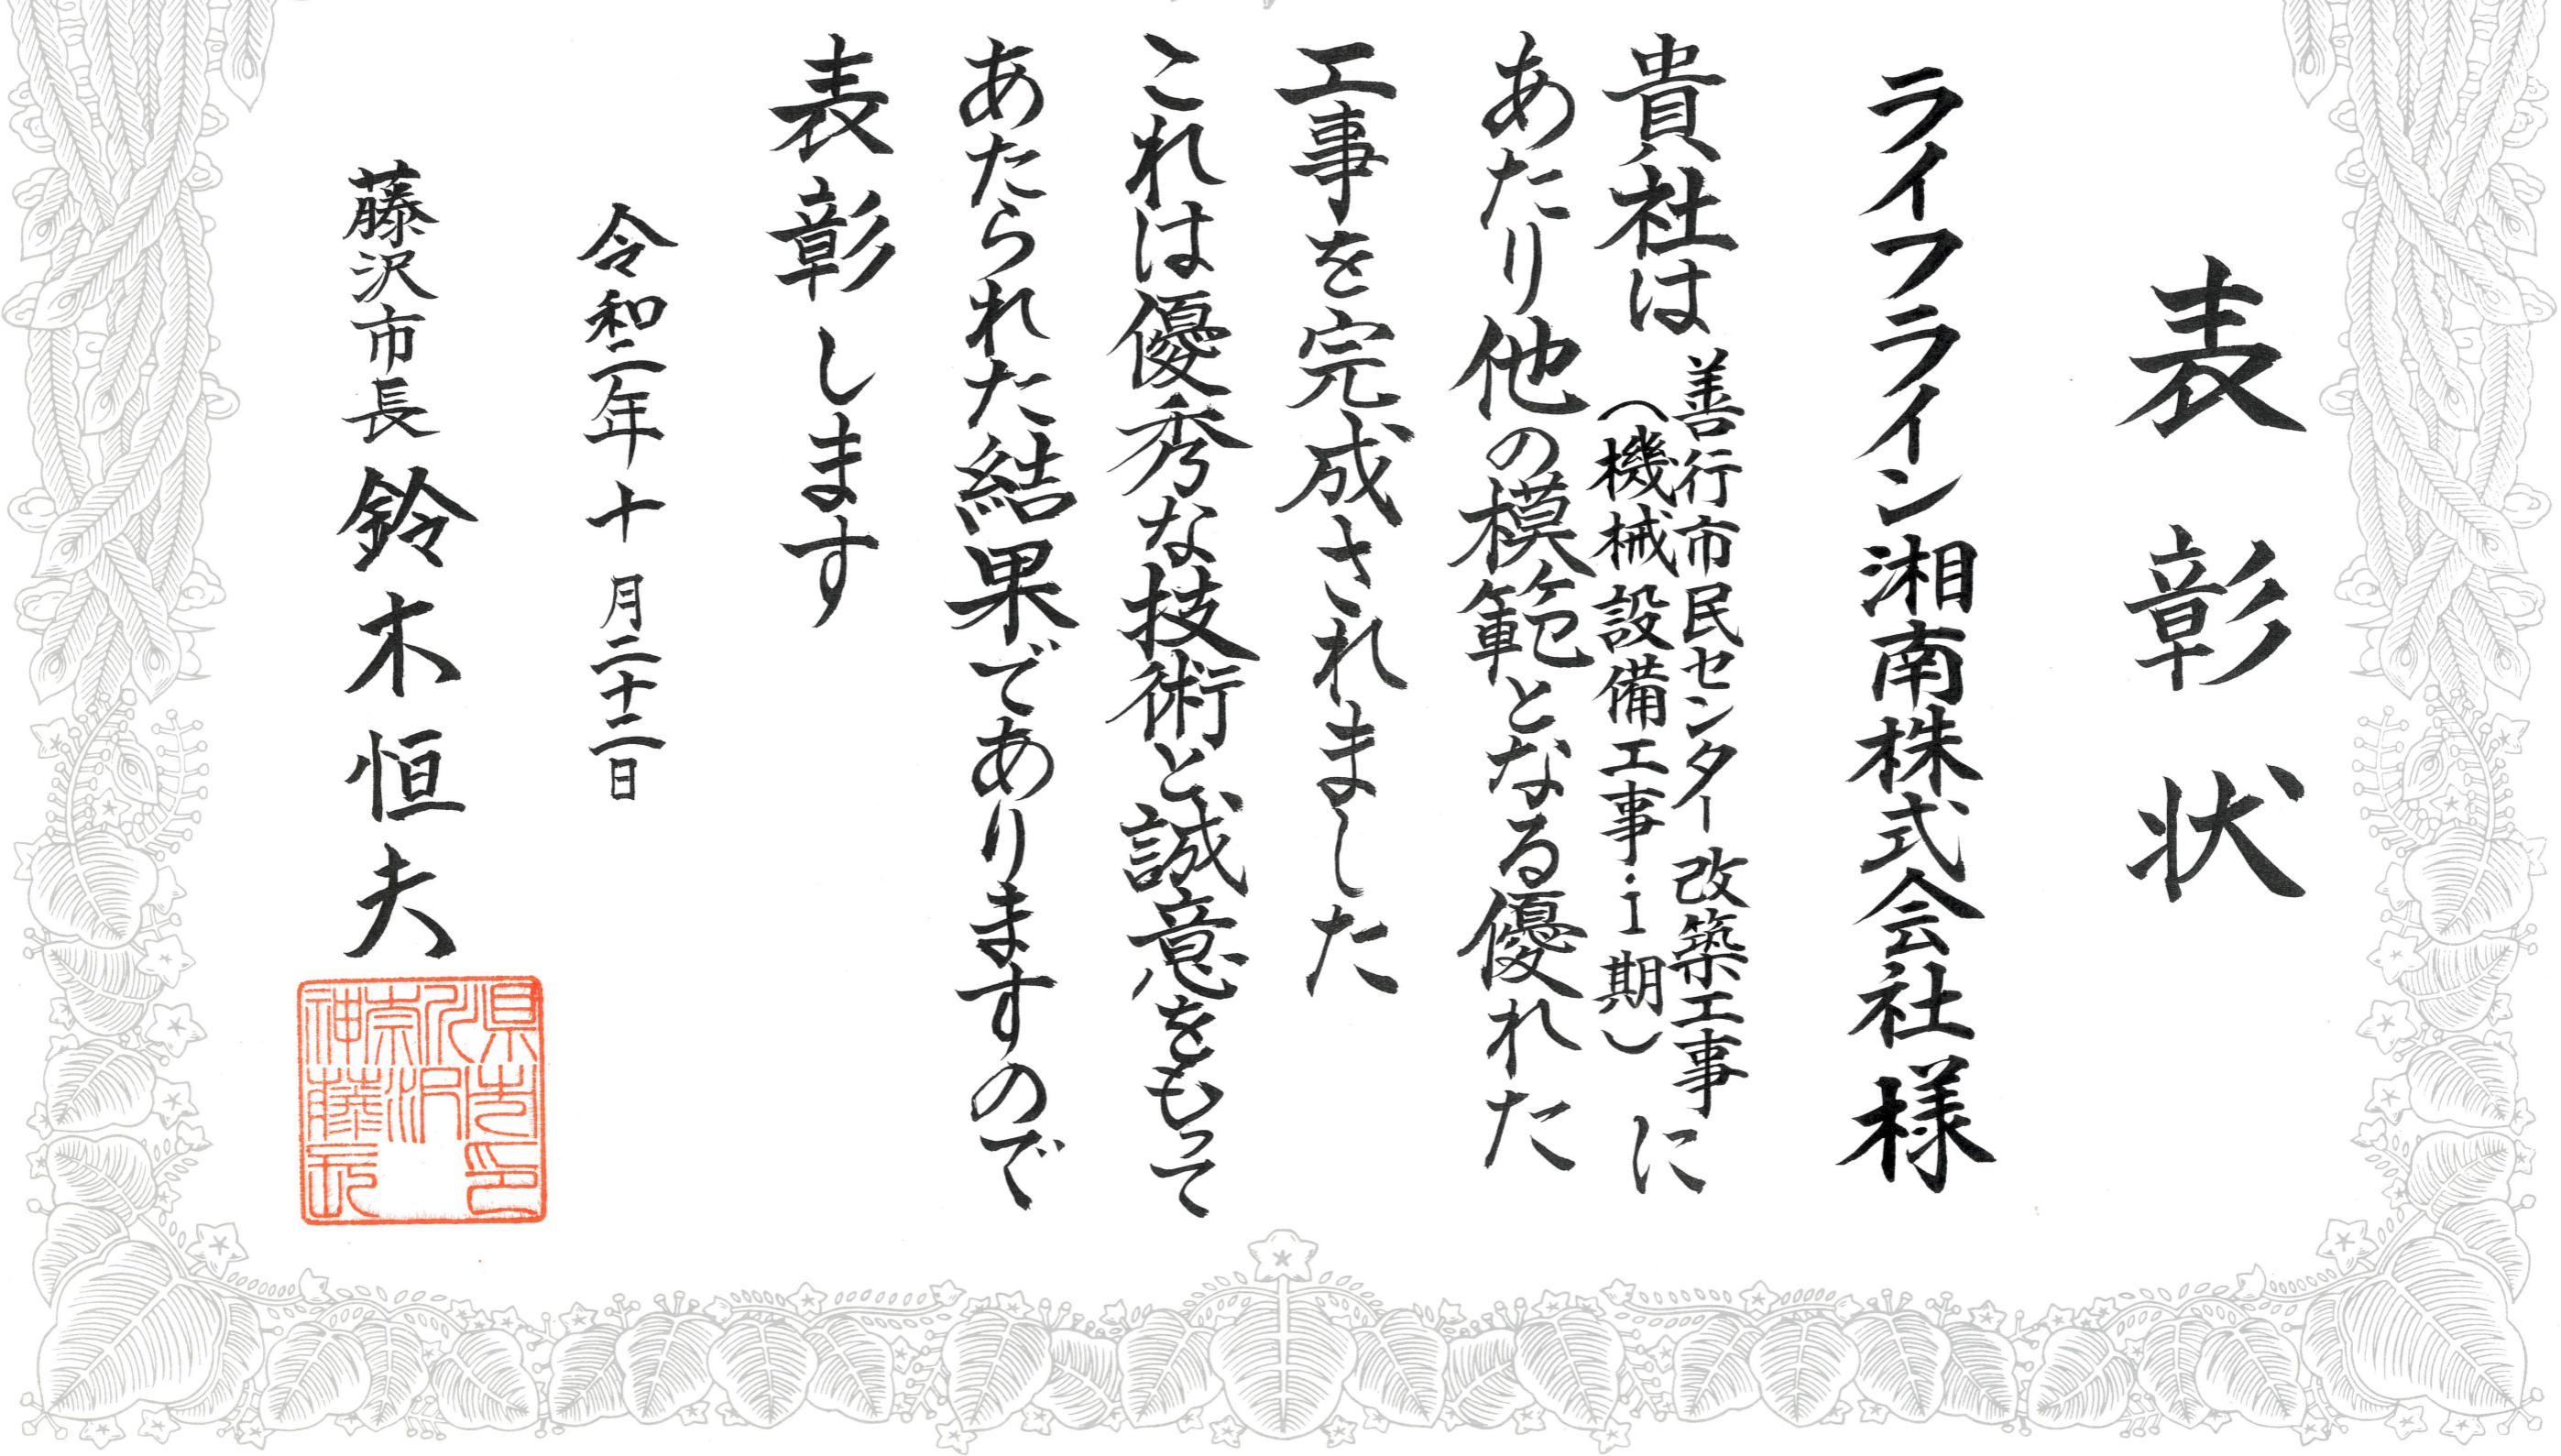 表彰状
ライフライン湘南株式会社様
貴社は善行市民センター改築工事
（機械設備工事・Ⅰ期）に
あたり他の模範となる優れた
工事を完成されました
これは優秀な技術と誠意をもって
あたられた結果でありますので
表彰します
令和二年十月二十二日
藤沢市長 鈴木恒夫